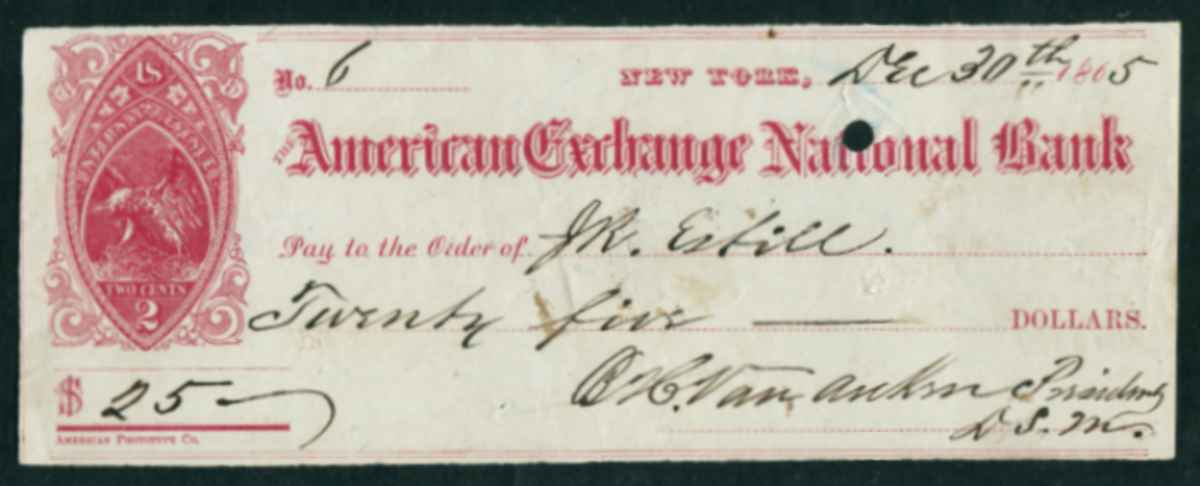 US
INTERNAL REVENUE
TWO CENTS
2
No. 6 NEW YORK, Dec 30th 1865
THE American Exchange National Bank
Pay to the Order of J.R.
Twenty five DOLLARS.
$ 25
Van Auken President
D. S. M.
AMERICAN PHOTOTYPE CO.